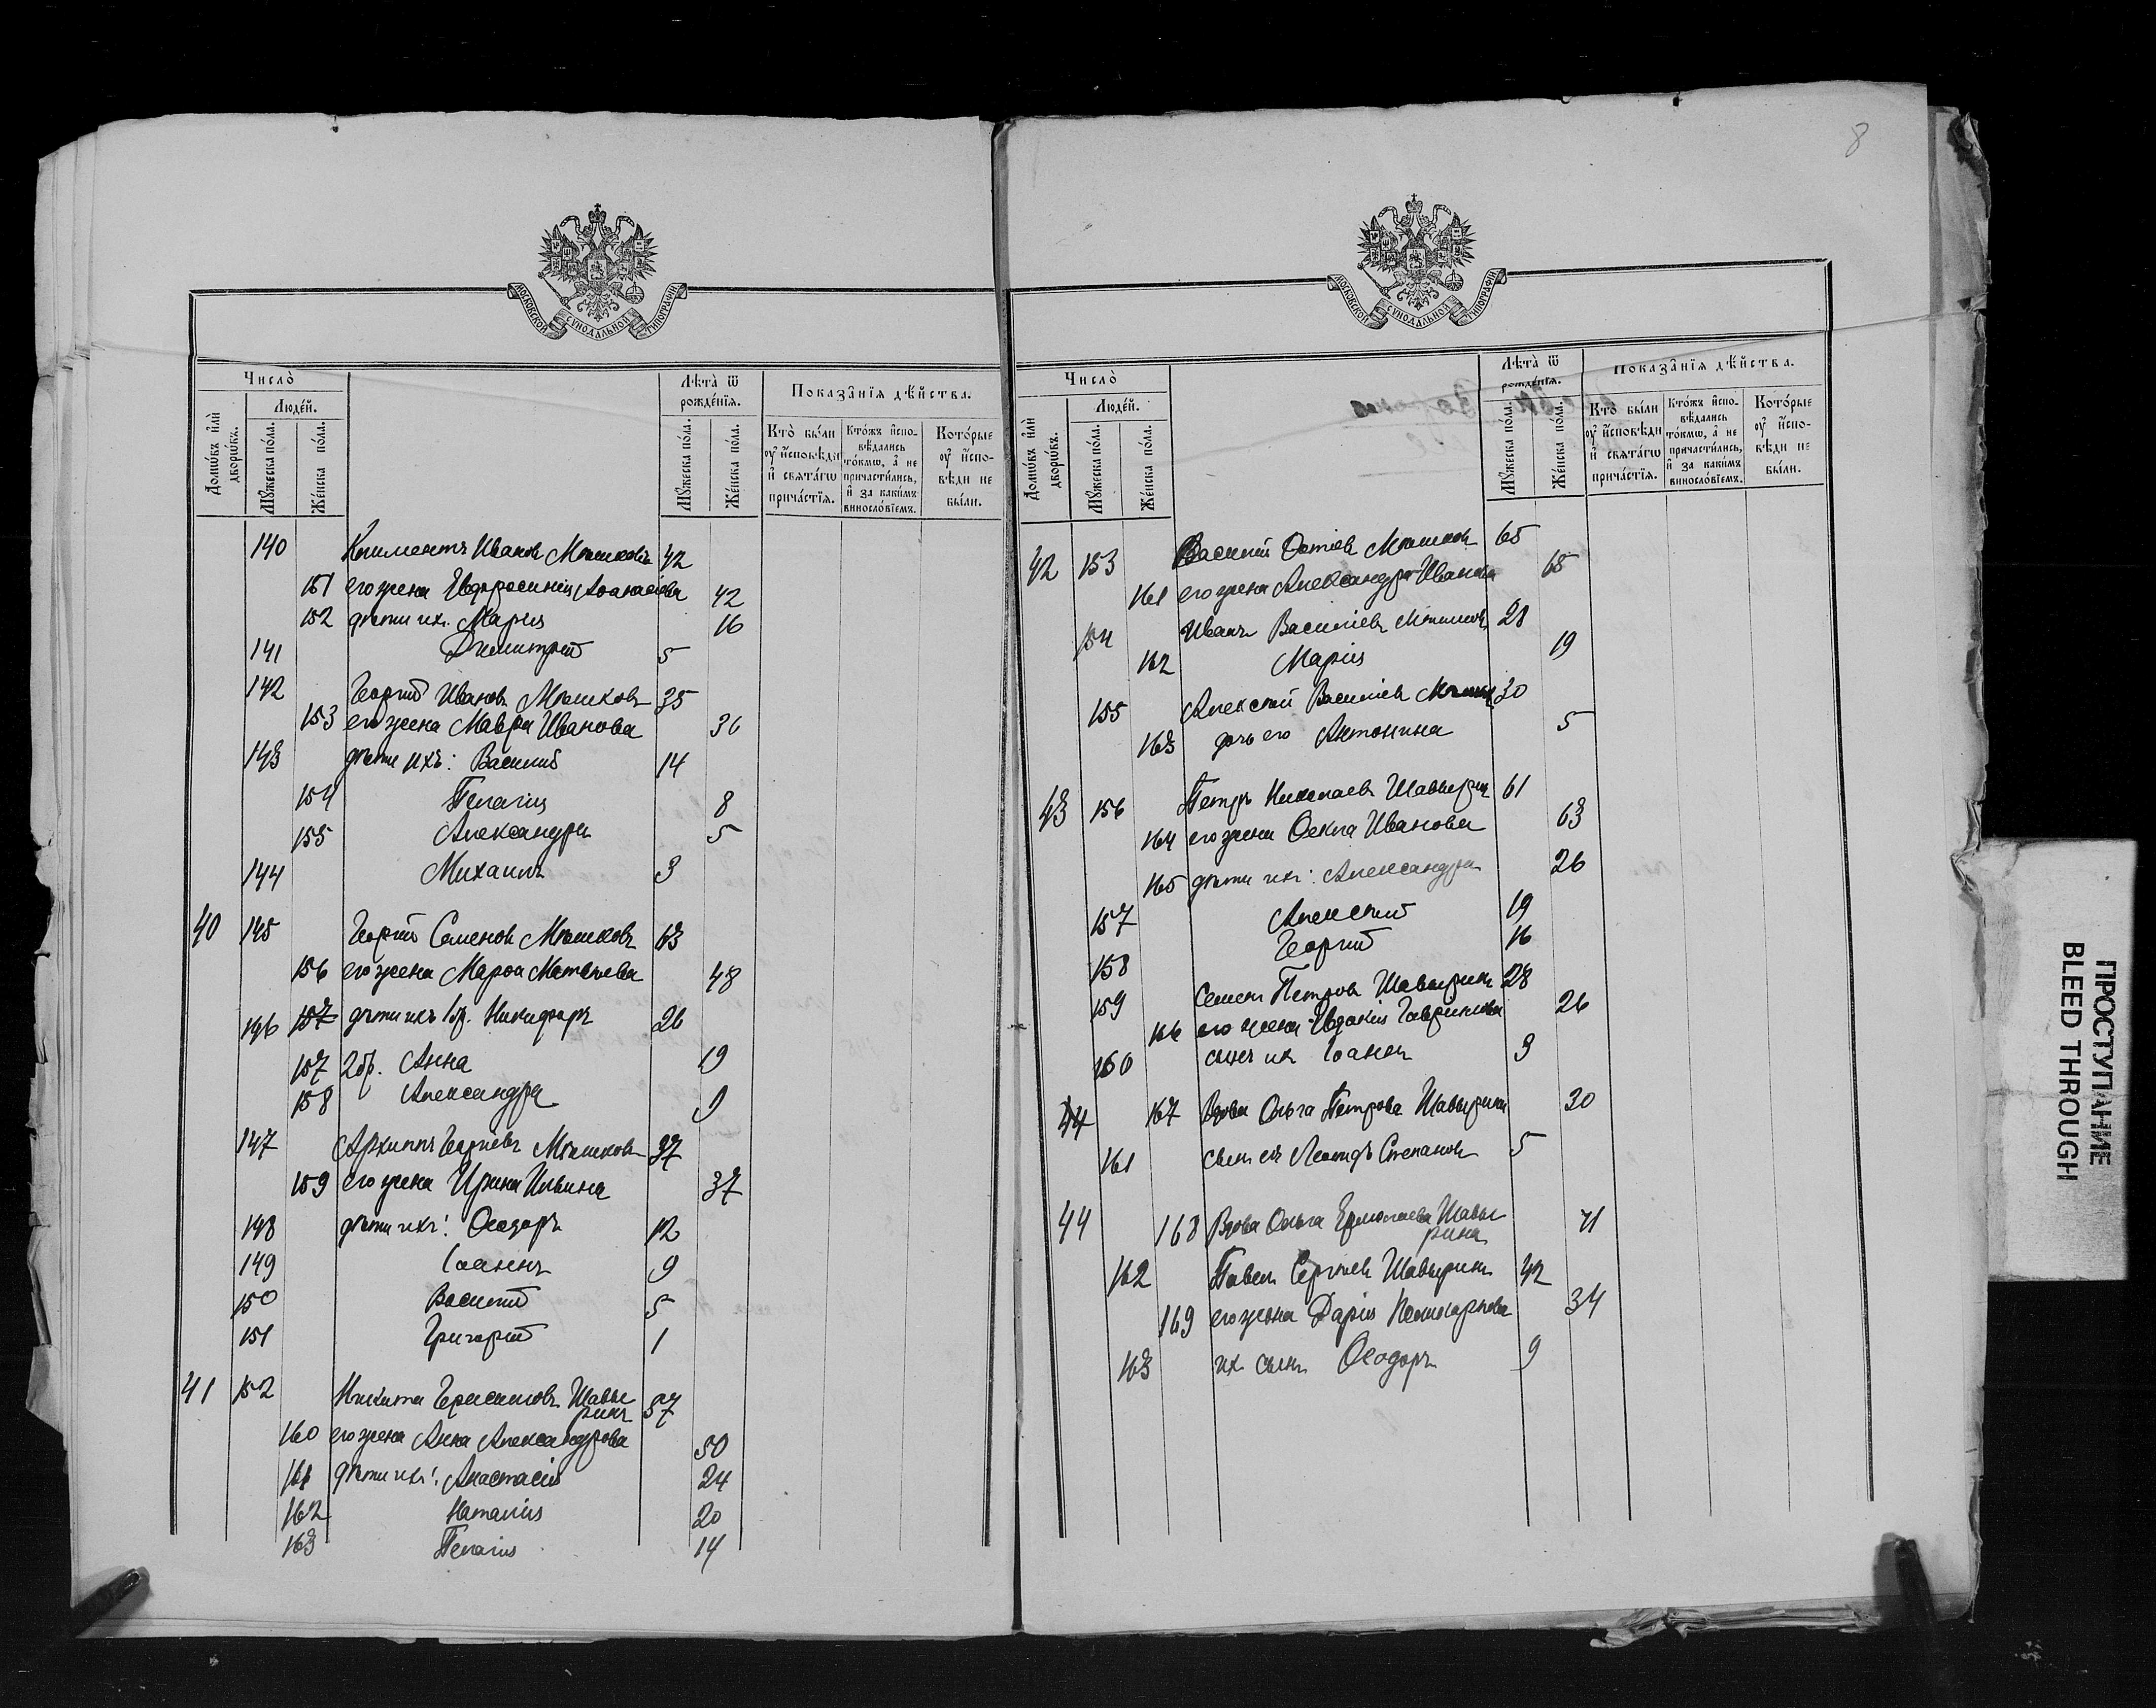 8
МОСКОВСКОЙ СУНОДАЛЬНОЙ ТИПОГРАФІИ
Число̀
Люде́й.
Домѡ́въ и҆лѝ дворѡ́въ.
Мꙋ́жеска по́ла.
Же́нска по́ла.
Лѣта̀ ѿ рожде́нїѧ.
Мꙋ́жеска по́ла.
Же́нска по́ла.
Показа̑нїѧ дѣ́йства.
Кто̀ бы́ли оу҆ и҆сповѣ́ди и҆ свѧта́гѡ прича́стїѧ.
Кто́жъ и҆спо-
вѣ́дались
то́кмѡ, а҆ не
причасти́лись,
и҆ за каки́мъ
винносло́вїемъ.
Кото́рые
оу҆ и҆спо-
вѣ́ди не
бы́ли.
140 Климентъ Иванов Мошковъ 42
151 его жена Евфросинія Аѳанасіева 42
152 дѣти ихъ. Марія 16
141 Димитрій 5
142 Георгій Иванов Мошковъ 35
153 его жена Мавра Иванова 36
143 дѣти ихъ: Василій 14
154 Пелагія 8
155 Александра 5
144 Михаилъ 3
40 145 Георгій Семенов Мошковъ 63
156 его жена Марѳа Матвѣева 48
146 157 дѣти ихъ 1 бр. Никифоръ 26
157 2 бр. Анна 19
158 Александра 9
147 Архиппъ Георгіевъ Мошковъ 37
159 его жена Ирина Ильина 37
148 дѣти ихъ: Ѳеодоръ 12
149 Іоаннъ 9
150 Василій 5
151 Григорій 1
41 152 Никита Герасимовъ Шавы
ринъ 57
160 его жена Анна Александрова 50
161 дѣти ихъ: Анастасія 24
162 Наталія 20
163 Пелагія 14
МОСКОВСКОЙ СУНОДАЛЬНОЙ ТИПОГРАФІИ
Число̀
Люде́й.
Домѡ́въ и҆лѝ дворѡ́въ.
Мꙋ́жеска по́ла.
Же́нска по́ла.
Лѣта̀ ѿ рожде́нїѧ.
Мꙋ́жеска по́ла.
Же́нска по́ла.
Показа̑нїѧ дѣ́йства.
Кто̀ бы́ли
оу҆ и҆сповѣ́ди
и҆ свѧта́гѡ
прича́стїѧ.
Кто́жъ и҆спо-
вѣ́дались
то́кмѡ, а҆ не
причасти́лись,
и҆ за каки́мъ
винносло́вїемъ.
Кото́рые
оу҆ и҆спо-
вѣ́ди не
бы́ли.
42 153 Василій Мошков 65
161 его жена Александра Иванова 65
154 Иванъ Василіевъ Мошковъ 28
162 Марія 19
155 Алексѣй Василіев 30
163 дочь его Антонина 5
43 156 Петръ Николаевъ Шавыринъ 61
164 его жена Ѳекла Иванова 63
165 дѣти ихъ: Александра 26
157 Алексѣй 19
158 Георгій 16
159 Семенъ Петров Шавыринъ 28
166 его жена Евдокія Гаврилова 26
160 сынъ их Іоаннъ 3
44 167 Вдова Ольга Петрова Шавырина 30
161 сынъ ея Леонидъ Степановъ 5
44 168 Вдова Ольга Ермолаева Шавы
рина 71
162 Павелъ Сергѣев Шавыринъ 42
169 его жена Дарія Поликарпова 34
163 их сынъ Ѳеодоръ 9
ПРОСТУПАНИЕ
BLEED THROUGH